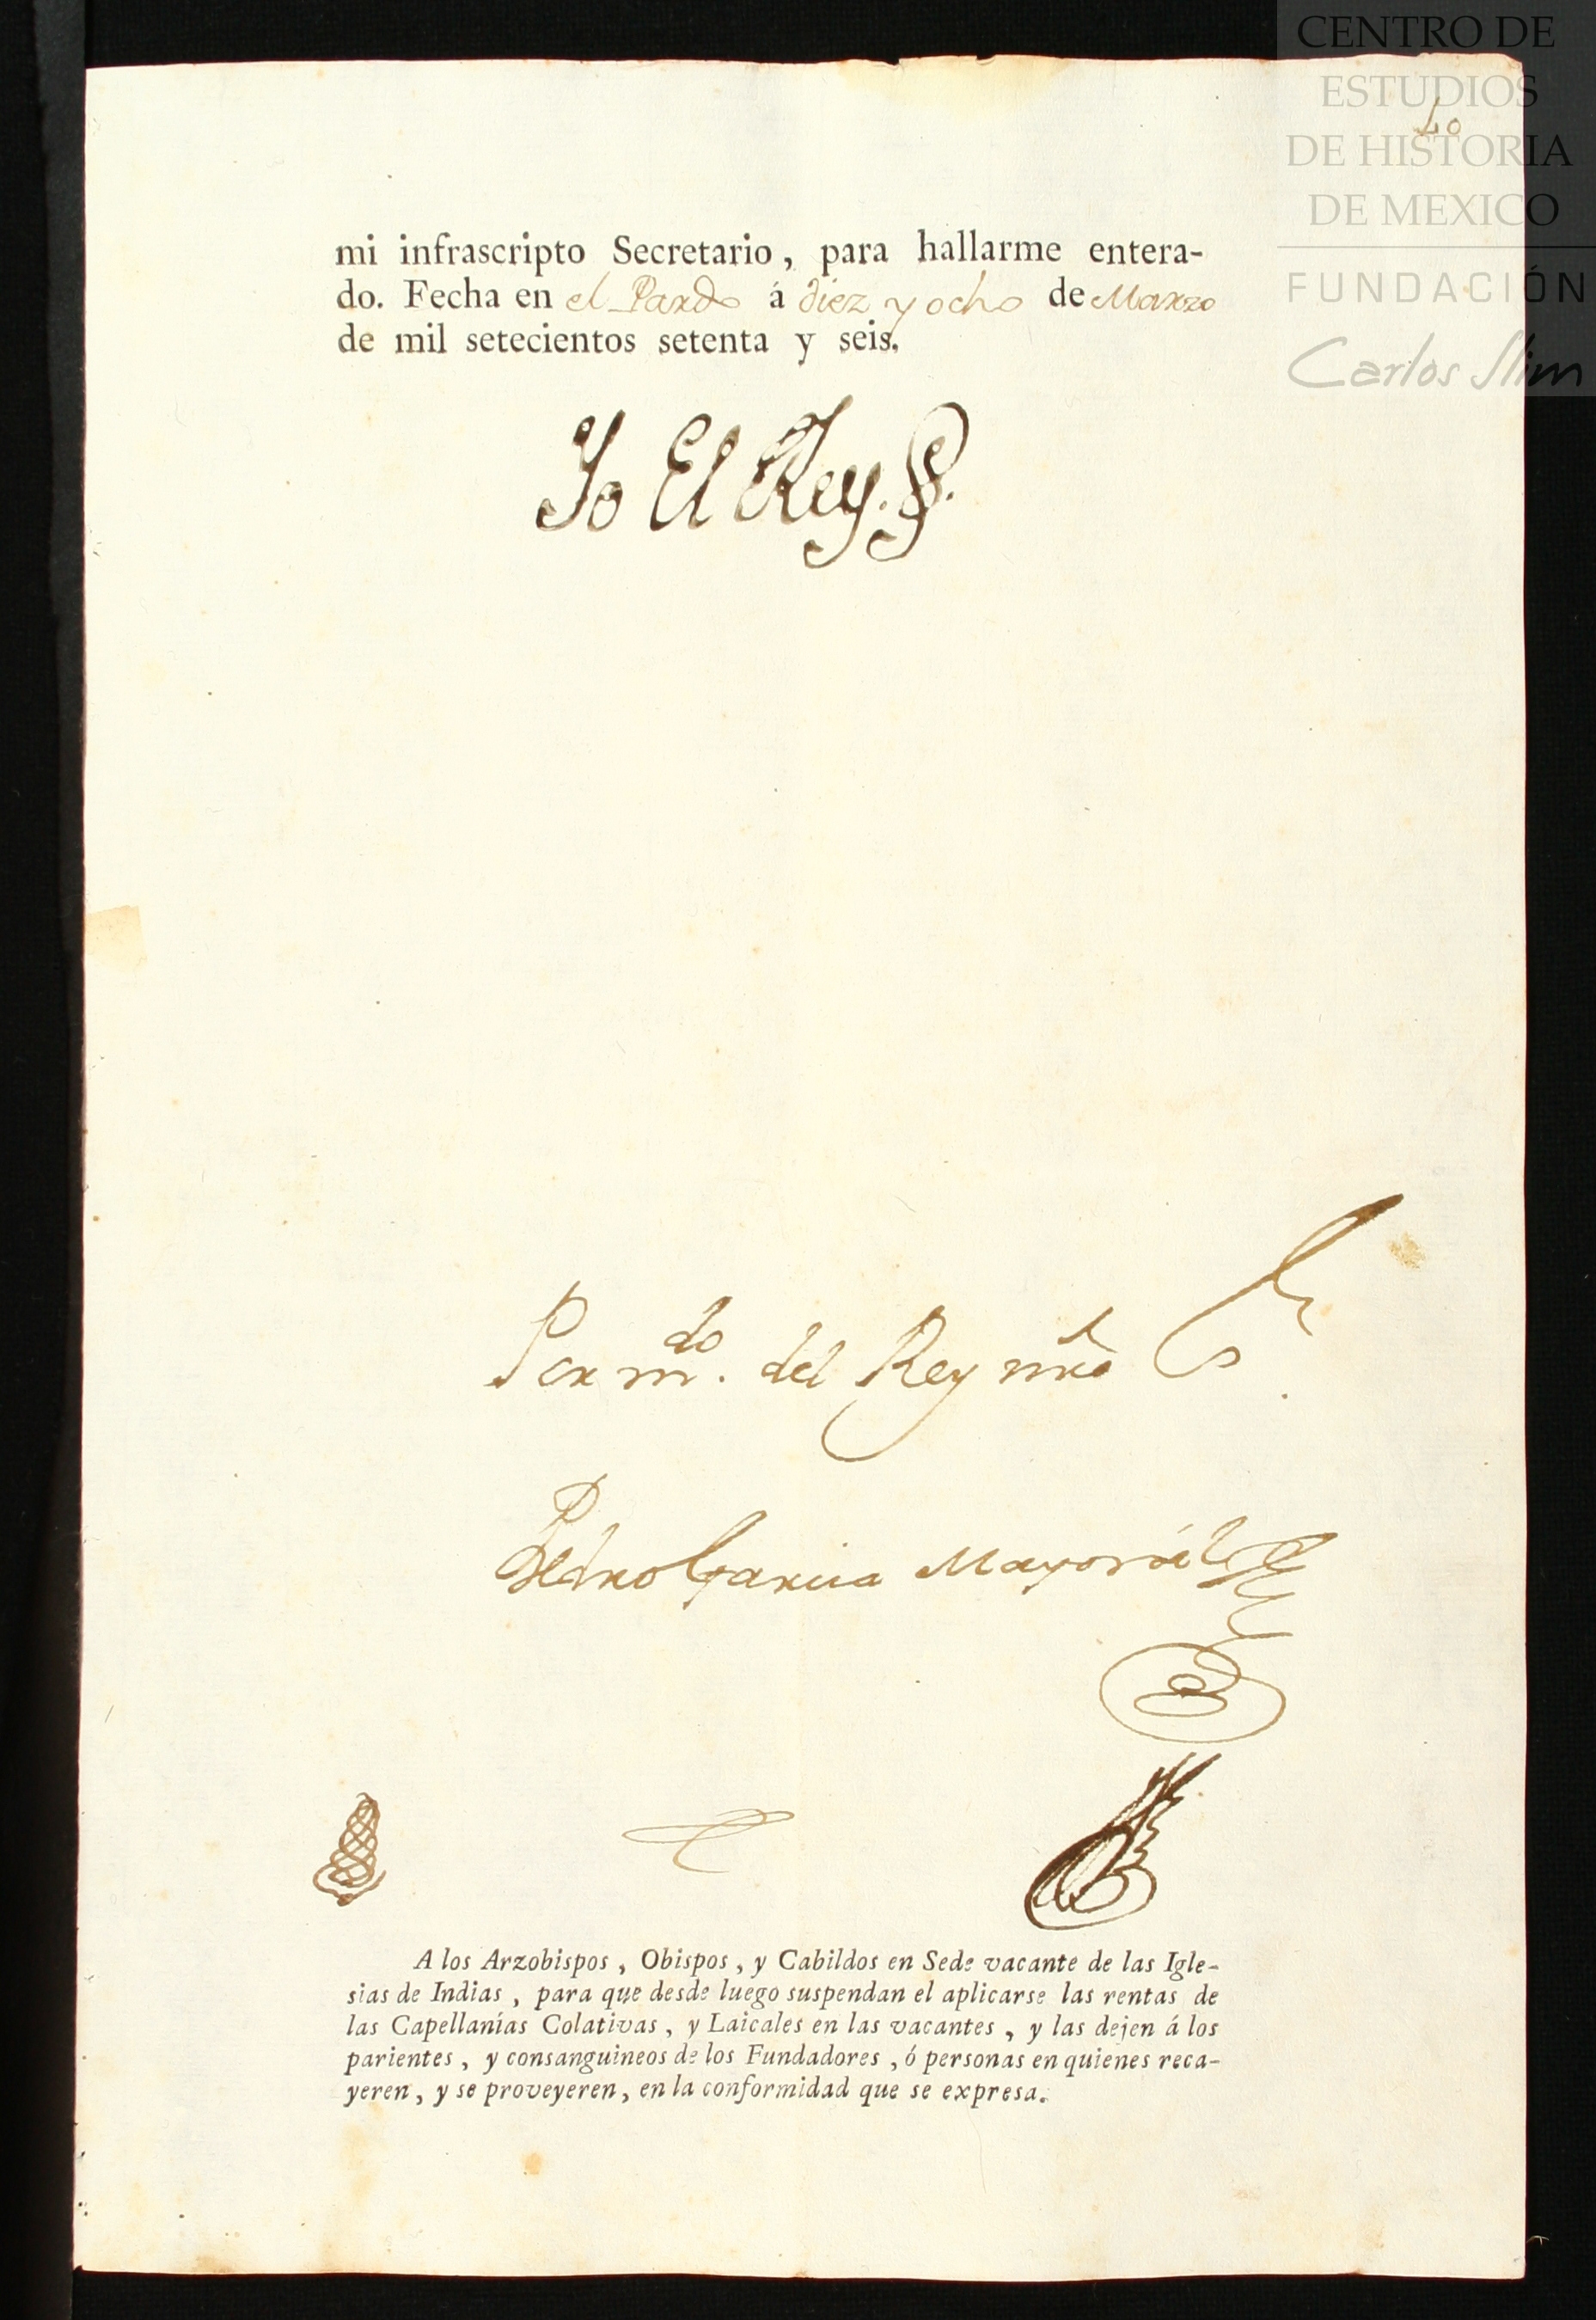 CENTRO DE
ESTUDIOS
DE HISTORIA
DE MEXICO
FUNDACIÓN
Carlos Slim
40
mi infrascripto Secretario, para hallarme entera-
do. Fecha en el Pardo á diez y ocho de Marzo
de mil setecientos setenta y seis.
Yo El Rey.
Por mdo. del Rey nro Sr
Pedro Garcia Mayoràl
A los Arzobispos, Obispos, y Cabildos en Sede vacante de las Igle-
sias de Indias, para que desde luego suspendan el aplicarse las rentas de
las Capellanías Colativas, y Laicales en las vacantes, y las dejen á los
parientes, y consanguineos de los Fundadores, ó personas en quienes reca-
yeren, y se proveyeren, en la conformidad que se expresa.